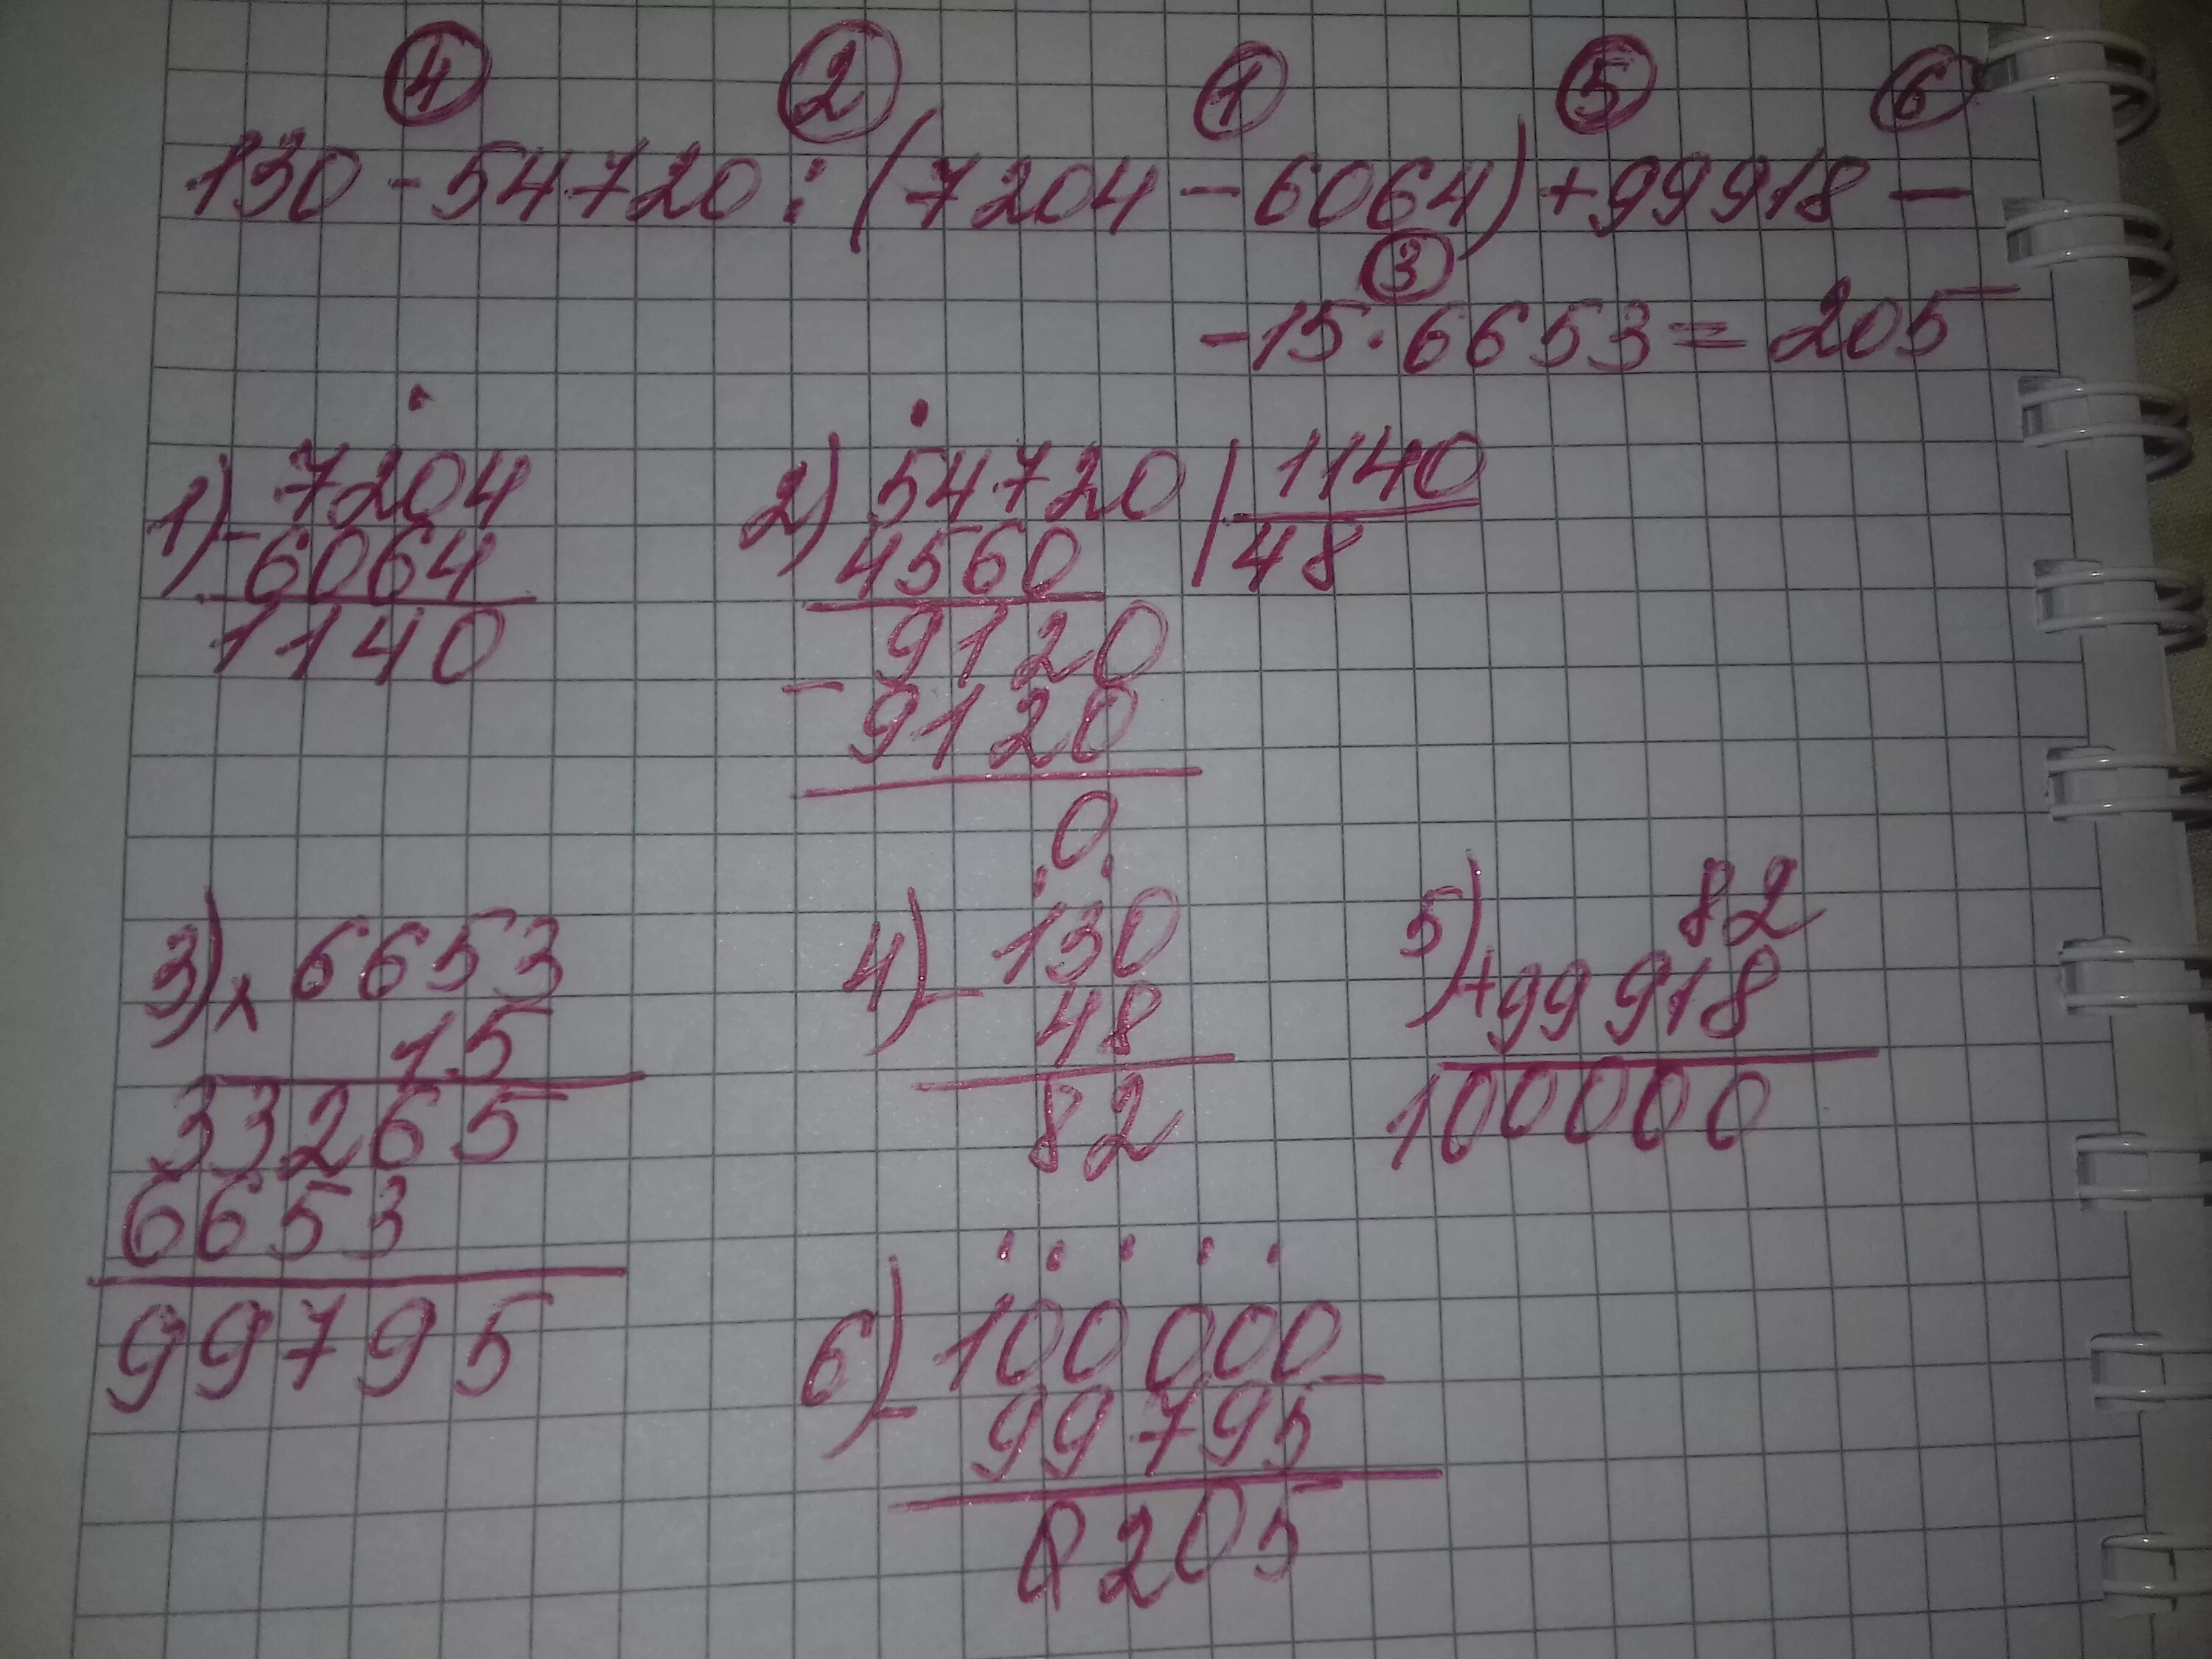 ④ ② ① ⑤ ⑥
130 - 54720 : (7204 - 6064) + 99918 -
③
- 15 · 6653 = 205
1) - 7204
6064
1140
2) 54720 | 1140
4560 | 48
9120
- 9120
0
3) x 6653
15
33265
6653
99795
4) - 130
48
82
5) 82
+ 99918
100000
6) - 100000
99795
0205